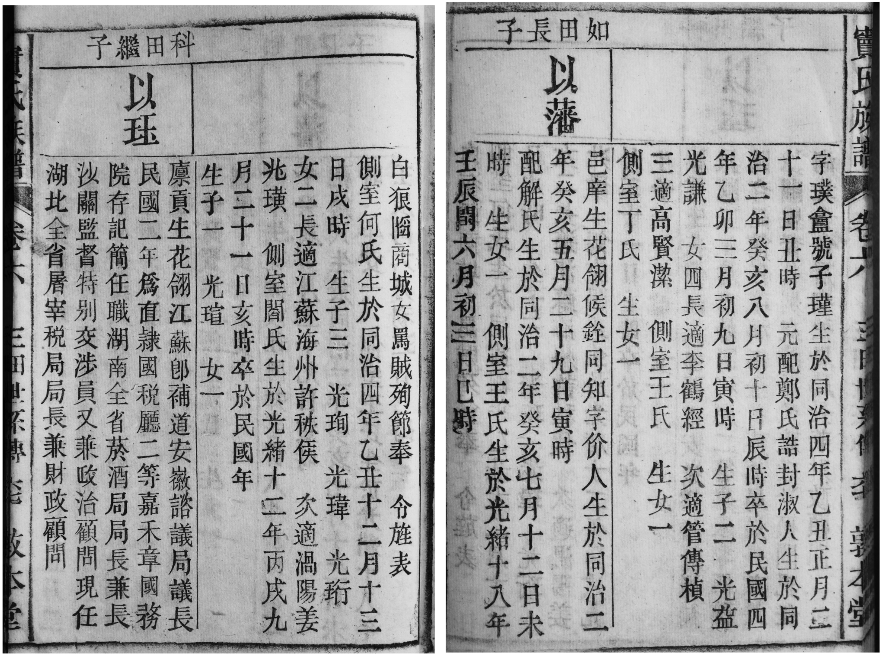 竇氏族譜 卷六 三田世系傳 敦本堂
如田長子
以藩
字璞盦號子瑾生於同治四年乙丑正月二
十一日丑時 元配鄭氏誥封淑人生於同
治二年癸亥八月初十日辰時卒於民國四
年乙卯三月初九日寅時 生子二 光益
光謙 女四長適李鶴經 次適管傳楨
三適高賢潔 側室王氏 生女一
側室丁氏 生女一
邑庠生花翎候銓同知字价人生於同治二
年癸亥五月二十九日寅時
配解氏生於同治二年癸亥七月十二日未
時 生女一 側室王氏生於光緒十八年
壬辰閏六月初三日巳時
科田繼子
以珏
白狼陷商城女罵賊殉節奉 令旌表
側室何氏生於同治四年乙丑十二月十三
日戌時 生子三 光珣 光瑋 光珩
女二長適江蘇海州許秩俟 次適渦陽姜
兆璜 側室閻氏生於光緒十二年丙戌九
月二十一日亥時卒於民國年
生子一 光瑄 女一
廪貢生花翎江蘇卽補道安徽諮議局議長
民國二年爲直隷國税廳二等嘉禾章國務
院存記簡任職湖南全省菸酒局局長兼長
沙關監督特别交涉員又兼政治顧問現任
湖北全省屠宰税局局長兼財政顧問
竇氏族譜 卷六 三田世系傳 敦本堂